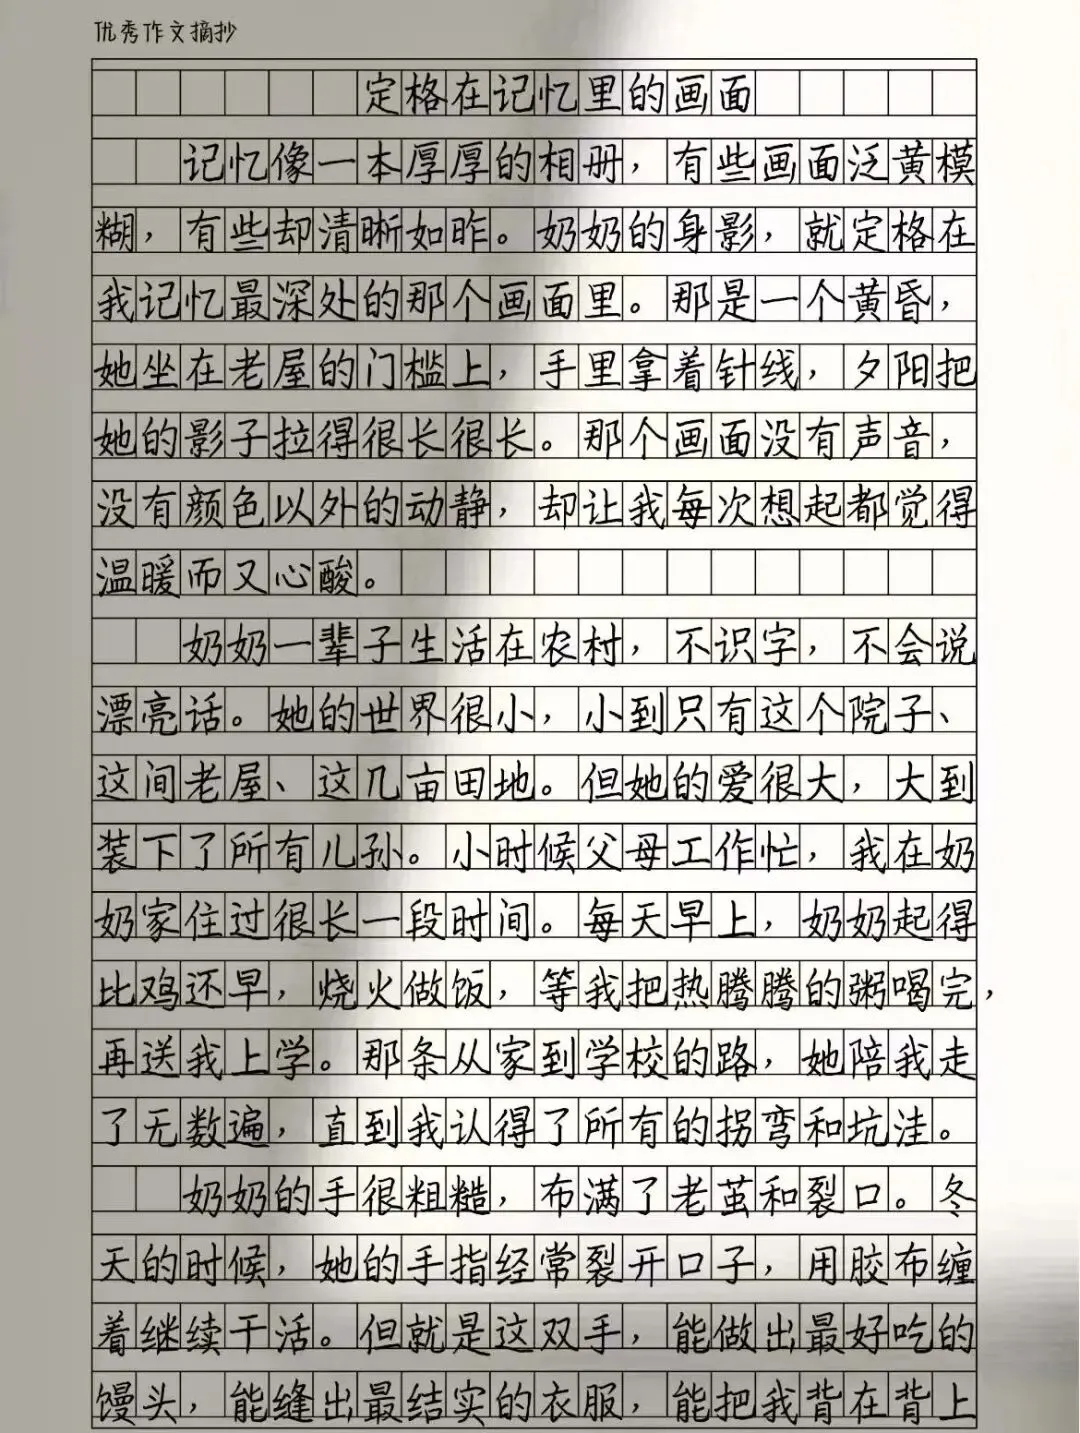 优秀作文摘抄
定格在记忆里的画面
记忆像一本厚厚的相册，有些画面泛黄模
糊，有些却清晰如昨。奶奶的身影，就定格在
我记忆最深处的那个画面里。那是一个黄昏，
她坐在老屋的门槛上，手里拿着针线，夕阳把
她的影子拉得很长很长。那个画面没有声音，
没有颜色以外的动静，却让我每次想起都觉得
温暖而又心酸。
奶奶一辈子生活在农村，不识字，不会说
漂亮话。她的世界很小，小到只有这个院子、
这间老屋、这几亩田地。但她的爱很大，大到
装下了所有儿孙。小时候父母工作忙，我在奶
奶家住过很长一段时间。每天早上，奶奶起得
比鸡还早，烧火做饭，等我把热腾腾的粥喝完，
再送我上学。那条从家到学校的路，她陪我走
了无数遍，直到我认得了所有的拐弯和坑洼。
奶奶的手很粗糙，布满了老茧和裂口。冬
天的时候，她的手指经常裂开口子，用胶布缠
着继续干活。但就是这双手，能做出最好吃的
馒头，能缝出最结实的衣服，能把我背在背上